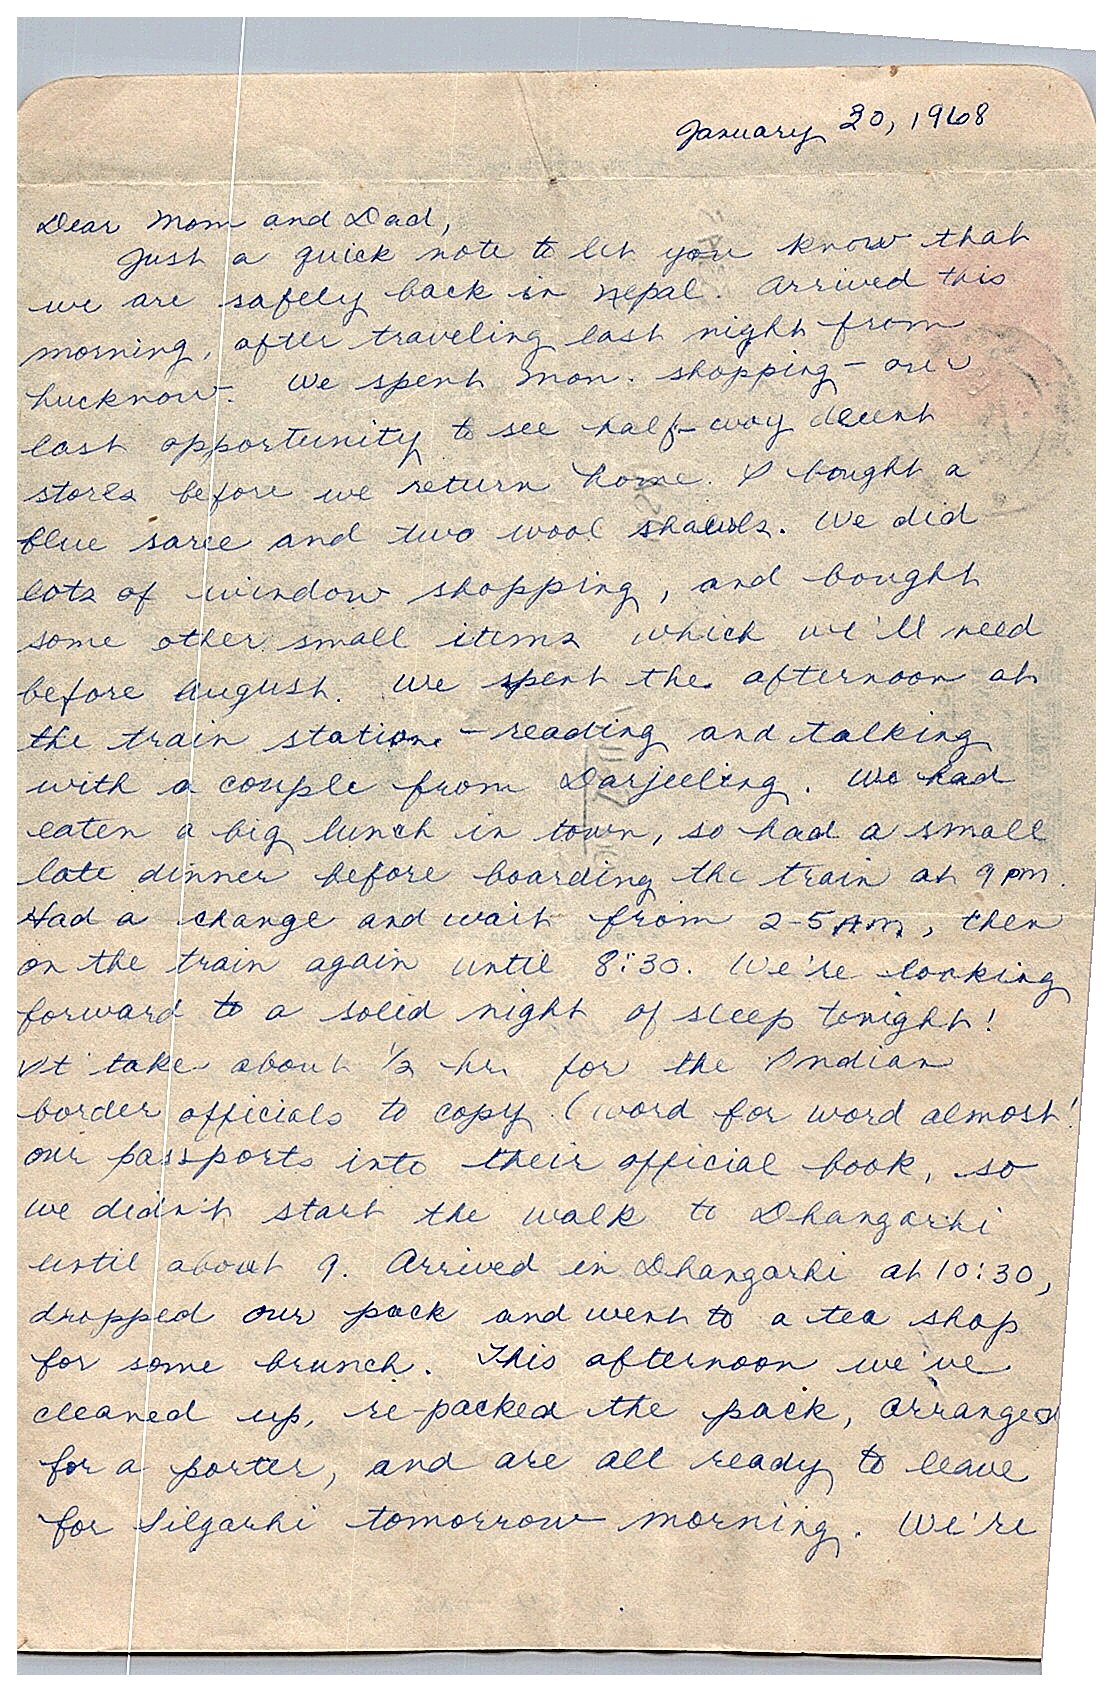 January 30, 1968
Dear Mom and Dad,
Just a quick note to let you know that
we are safely back in Nepal. Arrived this
morning, after traveling last night from
Lucknow. We spent Mon. shopping - our
last opportunity to see half-way decent
stores before we return home. I bought a
blue saree and two wool shawls. We did
lots of window shopping, and bought
some other small items which we'll need
before August. We spent the afternoon at
the train station - reading and talking
with a couple from Darjeeling. We had
eaten a big lunch in town, so had a small
late dinner before boarding the train at 9 pm.
Had a change and wait from 2-5 AM, then
on the train again until 8:30. We're looking
forward to a solid night of sleep tonight!
It take about 1/2 hr. for the Indian
border officials to copy (word for word almost!
our passports into their official book, so
we didn't start the walk to Dhangarhi
until about 9. Arrived in Dhangarhi at 10:30,
dropped our pack and went to a tea shop
for some brunch. This afternoon we've
cleaned up, re-packed the pack, arranged
for a porter, and are all ready to leave
for Silgarhi tomorrow morning. We're